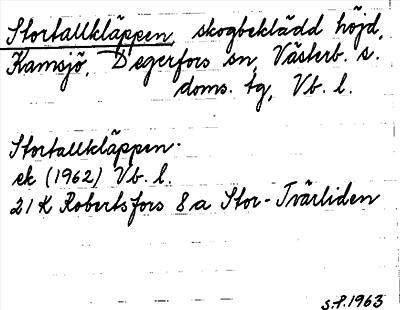 Stortallkläppen, skogbeklädd höjd,
Kamsjö, Degerfors sn, Västerb. s.
doms. tg, Vb. l.
Stortallkläppen.
ek (1962) Vb. l.
21 K Robertsfors 8 a Stor-Tvärliden
S.P. 1963